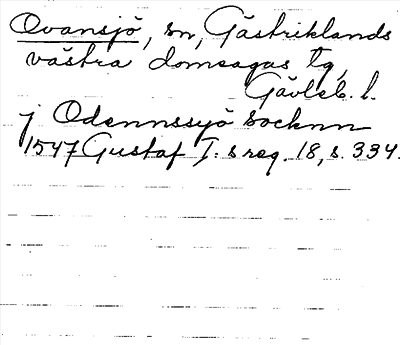 Ovansjö, sn, Gästriklands
västra domsagas tg,
Gävleb. l.
j Odennssyö socknn
1547 Gustaf I: s reg. 18, s. 334.